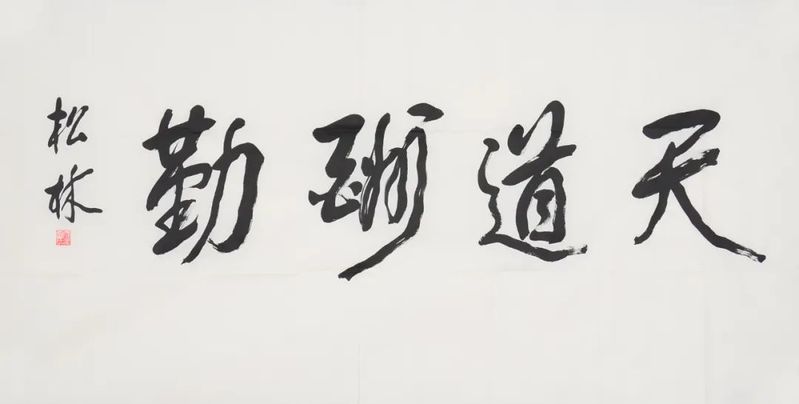 天道酬勤
松林